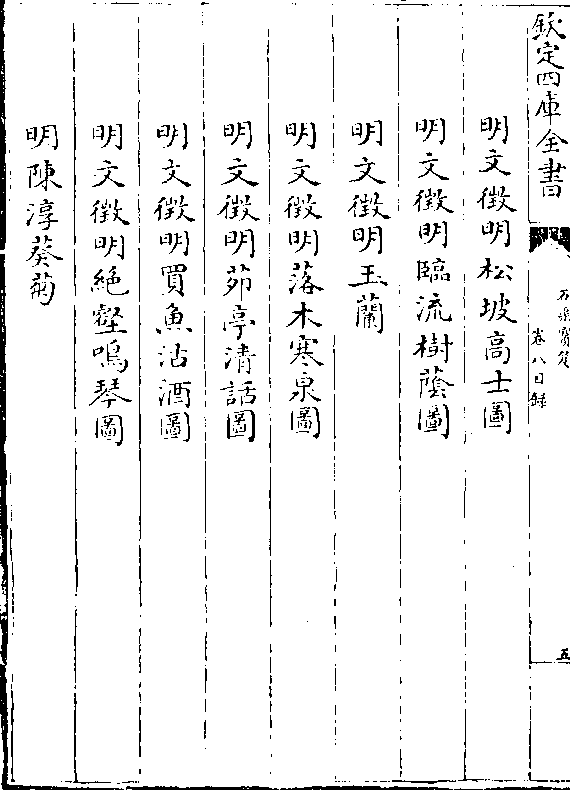 欽定四庫全書
石渠寳笈
卷八目錄
五
明文徴明松坡高士圖
明文徴明臨流樹蔭圖
明文徴明玉蘭
明文徴明落木寒泉圖
明文徴明茆亭清話圖
明文徴明買魚沽酒圖
明文徴明絶壑鳴琴圖
明陳淳葵菊